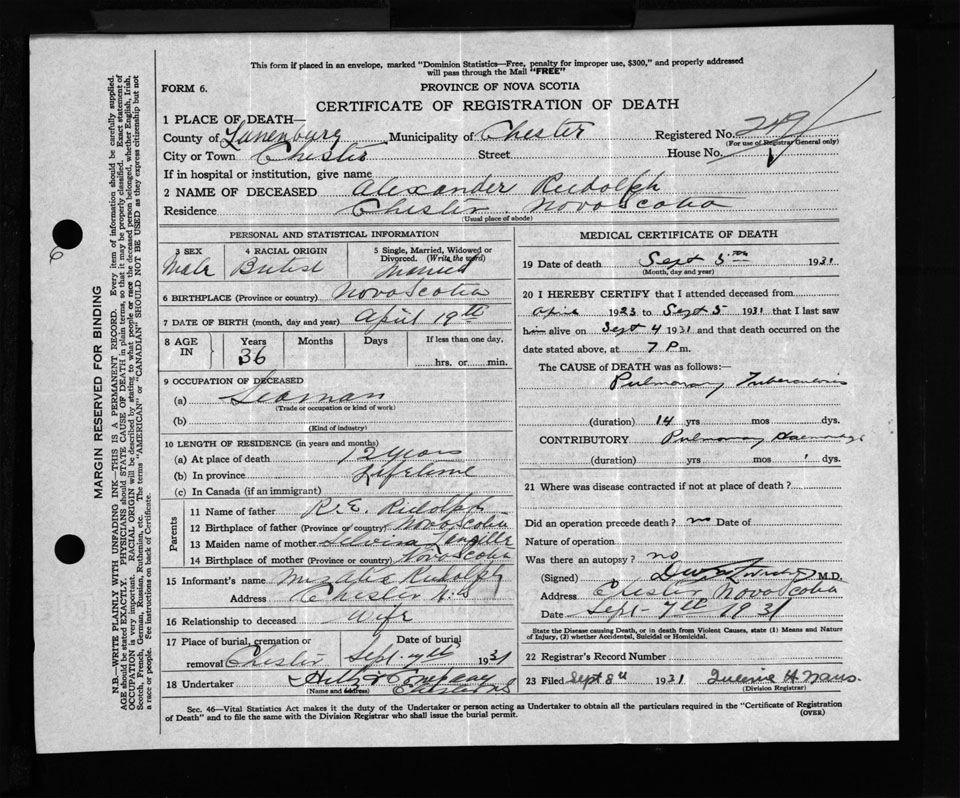 This form if placed in an envelope, marked "Dominion Statistics—Free, penalty for improper use, $300," and properly addressed
will pass through the Mail "FREE"
FORM 6.
PROVINCE OF NOVA SCOTIA
CERTIFICATE OF REGISTRATION OF DEATH
1 PLACE OF DEATH—
County of Lunenburg Municipality of Chester Registered No. 249
(For use of Registrar General only)
City or Town Chester Street House No.
If in hospital or institution, give name
2 NAME OF DECEASED Alexander Rudolph
Residence Chester Nova Scotia
(Usual place of abode)
PERSONAL AND STATISTICAL INFORMATION
3 SEX 4 RACIAL ORIGIN 5 Single, Married, Widowed or
Divorced. (Write the word)
Male British Married
6 BIRTHPLACE (Province or country) Nova Scotia
7 DATE OF BIRTH (month, day and year) April 19th
8 AGE IN Years Months Days If less than one day,
36 hrs. or min.
9 OCCUPATION OF DECEASED
(a) Seaman
(Trade or occupation or kind of work)
(b)
(Kind of industry)
10 LENGTH OF RESIDENCE (in years and months)
(a) At place of death 12 years
(b) In province Lifetime
(c) In Canada (if an immigrant)
Parents
11 Name of father R.E. Rudolph
12 Birthplace of father (Province or country) Nova Scotia
13 Maiden name of mother Langille
14 Birthplace of mother (Province or country) Nova Scotia
15 Informant's name Rudolph
Address Chester N.S
16 Relationship to deceased Wife
17 Place of burial, cremation or Date of burial
removal Chester Sept. 7th 1931
18 Undertaker & Company
(Name and address) Chester NS
MEDICAL CERTIFICATE OF DEATH
19 Date of death Sept 5th 1931
(Month, day and year)
20 I HEREBY CERTIFY that I attended deceased from
April 1923 to Sept 5 1931 that I last saw
him alive on Sept 4 1931 and that death occurred on the
date stated above, at 7 P m.
The CAUSE of DEATH was as follows:—
Pulmonary Tuberculosis
(duration) 14 yrs mos dys.
CONTRIBUTORY Pulmonary
(duration) yrs mos dys.
21 Where was disease contracted if not at place of death?
Did an operation precede death? no Date of
Nature of operation
Was there an autopsy? no
(Signed) M.D.
Address Chester Nova Scotia
Date Sept 7th 1931
State the Disease causing Death, or in death from Violent Causes, state (1) Means and Nature
of Injury, (2) whether Accidental, Suicidal or Homicidal.
22 Registrar's Record Number
23 Filed Sept 8th 1931
(Division Registrar)
Sec. 46—Vital Statistics Act makes it the duty of the Undertaker or person acting as Undertaker to obtain all the particulars required in the "Certificate of Registration
of Death" and to file the same with the Division Registrar who shall issue the burial permit.
(OVER)
MARGIN RESERVED FOR BINDING
N.B.—WRITE PLAINLY WITH UNFADING INK—THIS IS A PERMANENT RECORD. Every item of information should be carefully supplied.
AGE should be stated EXACTLY. PHYSICIANS should STATE CAUSE OF DEATH in plain terms, so that it may be properly classified. Exact statement of
OCCUPATION is very important. RACIAL ORIGIN will be described by stating to what people or race the deceased person belonged, whether English, Irish,
Scotch, French, German, Russian, Ruthenian, etc. The terms "AMERICAN" or "CANADIAN" SHOULD NOT BE USED as they express citizenship but not
a race or people. See instructions on back of Certificate.